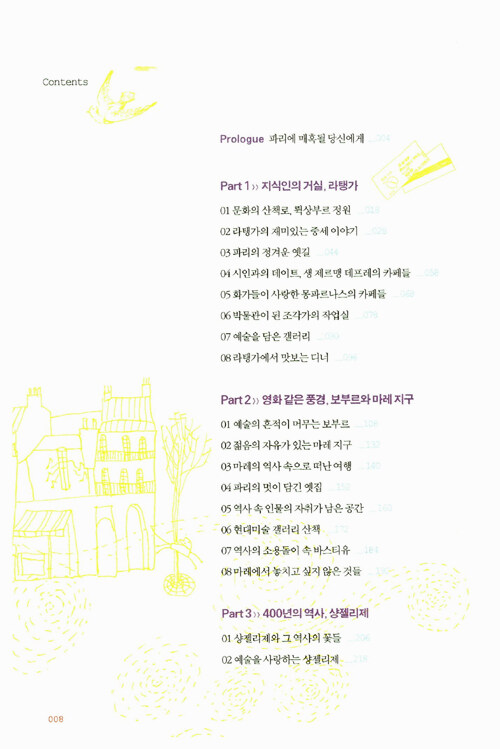 Contents
Prologue 파리에 매혹될 당신에게 ...004
Part 1 >> 지식인의 거실, 라탱가
01 문화의 산책로, 뤽상부르 정원
02 라탱가의 재미있는 중세 이야기 ...028
03 파리의 정겨운 옛길 ...044
04 시인과의 데이트, 생 제르맹 데프레의 카페들
05 화가들이 사랑한 몽파르나스의 카페들
06 박물관이 된 조각가의 작업실
07 예술을 담은 갤러리
08 라탱가에서 맛보는 디너
Part 2 >> 영화 같은 풍경, 보부르와 마레 지구
01 예술의 흔적이 머무는 보부르
02 젊음의 자유가 있는 마레 지구
03 마레의 역사 속으로 떠난 여행 ...140
04 파리의 멋이 담긴 옛집
05 역사 속 인물의 자취가 남은 공간
06 현대미술 갤러리 산책 ...172
07 역사의 소용돌이 속 바스티유 ...184
08 마레에서 놓치고 싶지 않은 것들
Part 3 >> 400년의 역사, 샹젤리제
01 샹젤리제와 그 역사의 꽃들 ...206
02 예술을 사랑하는 샹젤리제
008